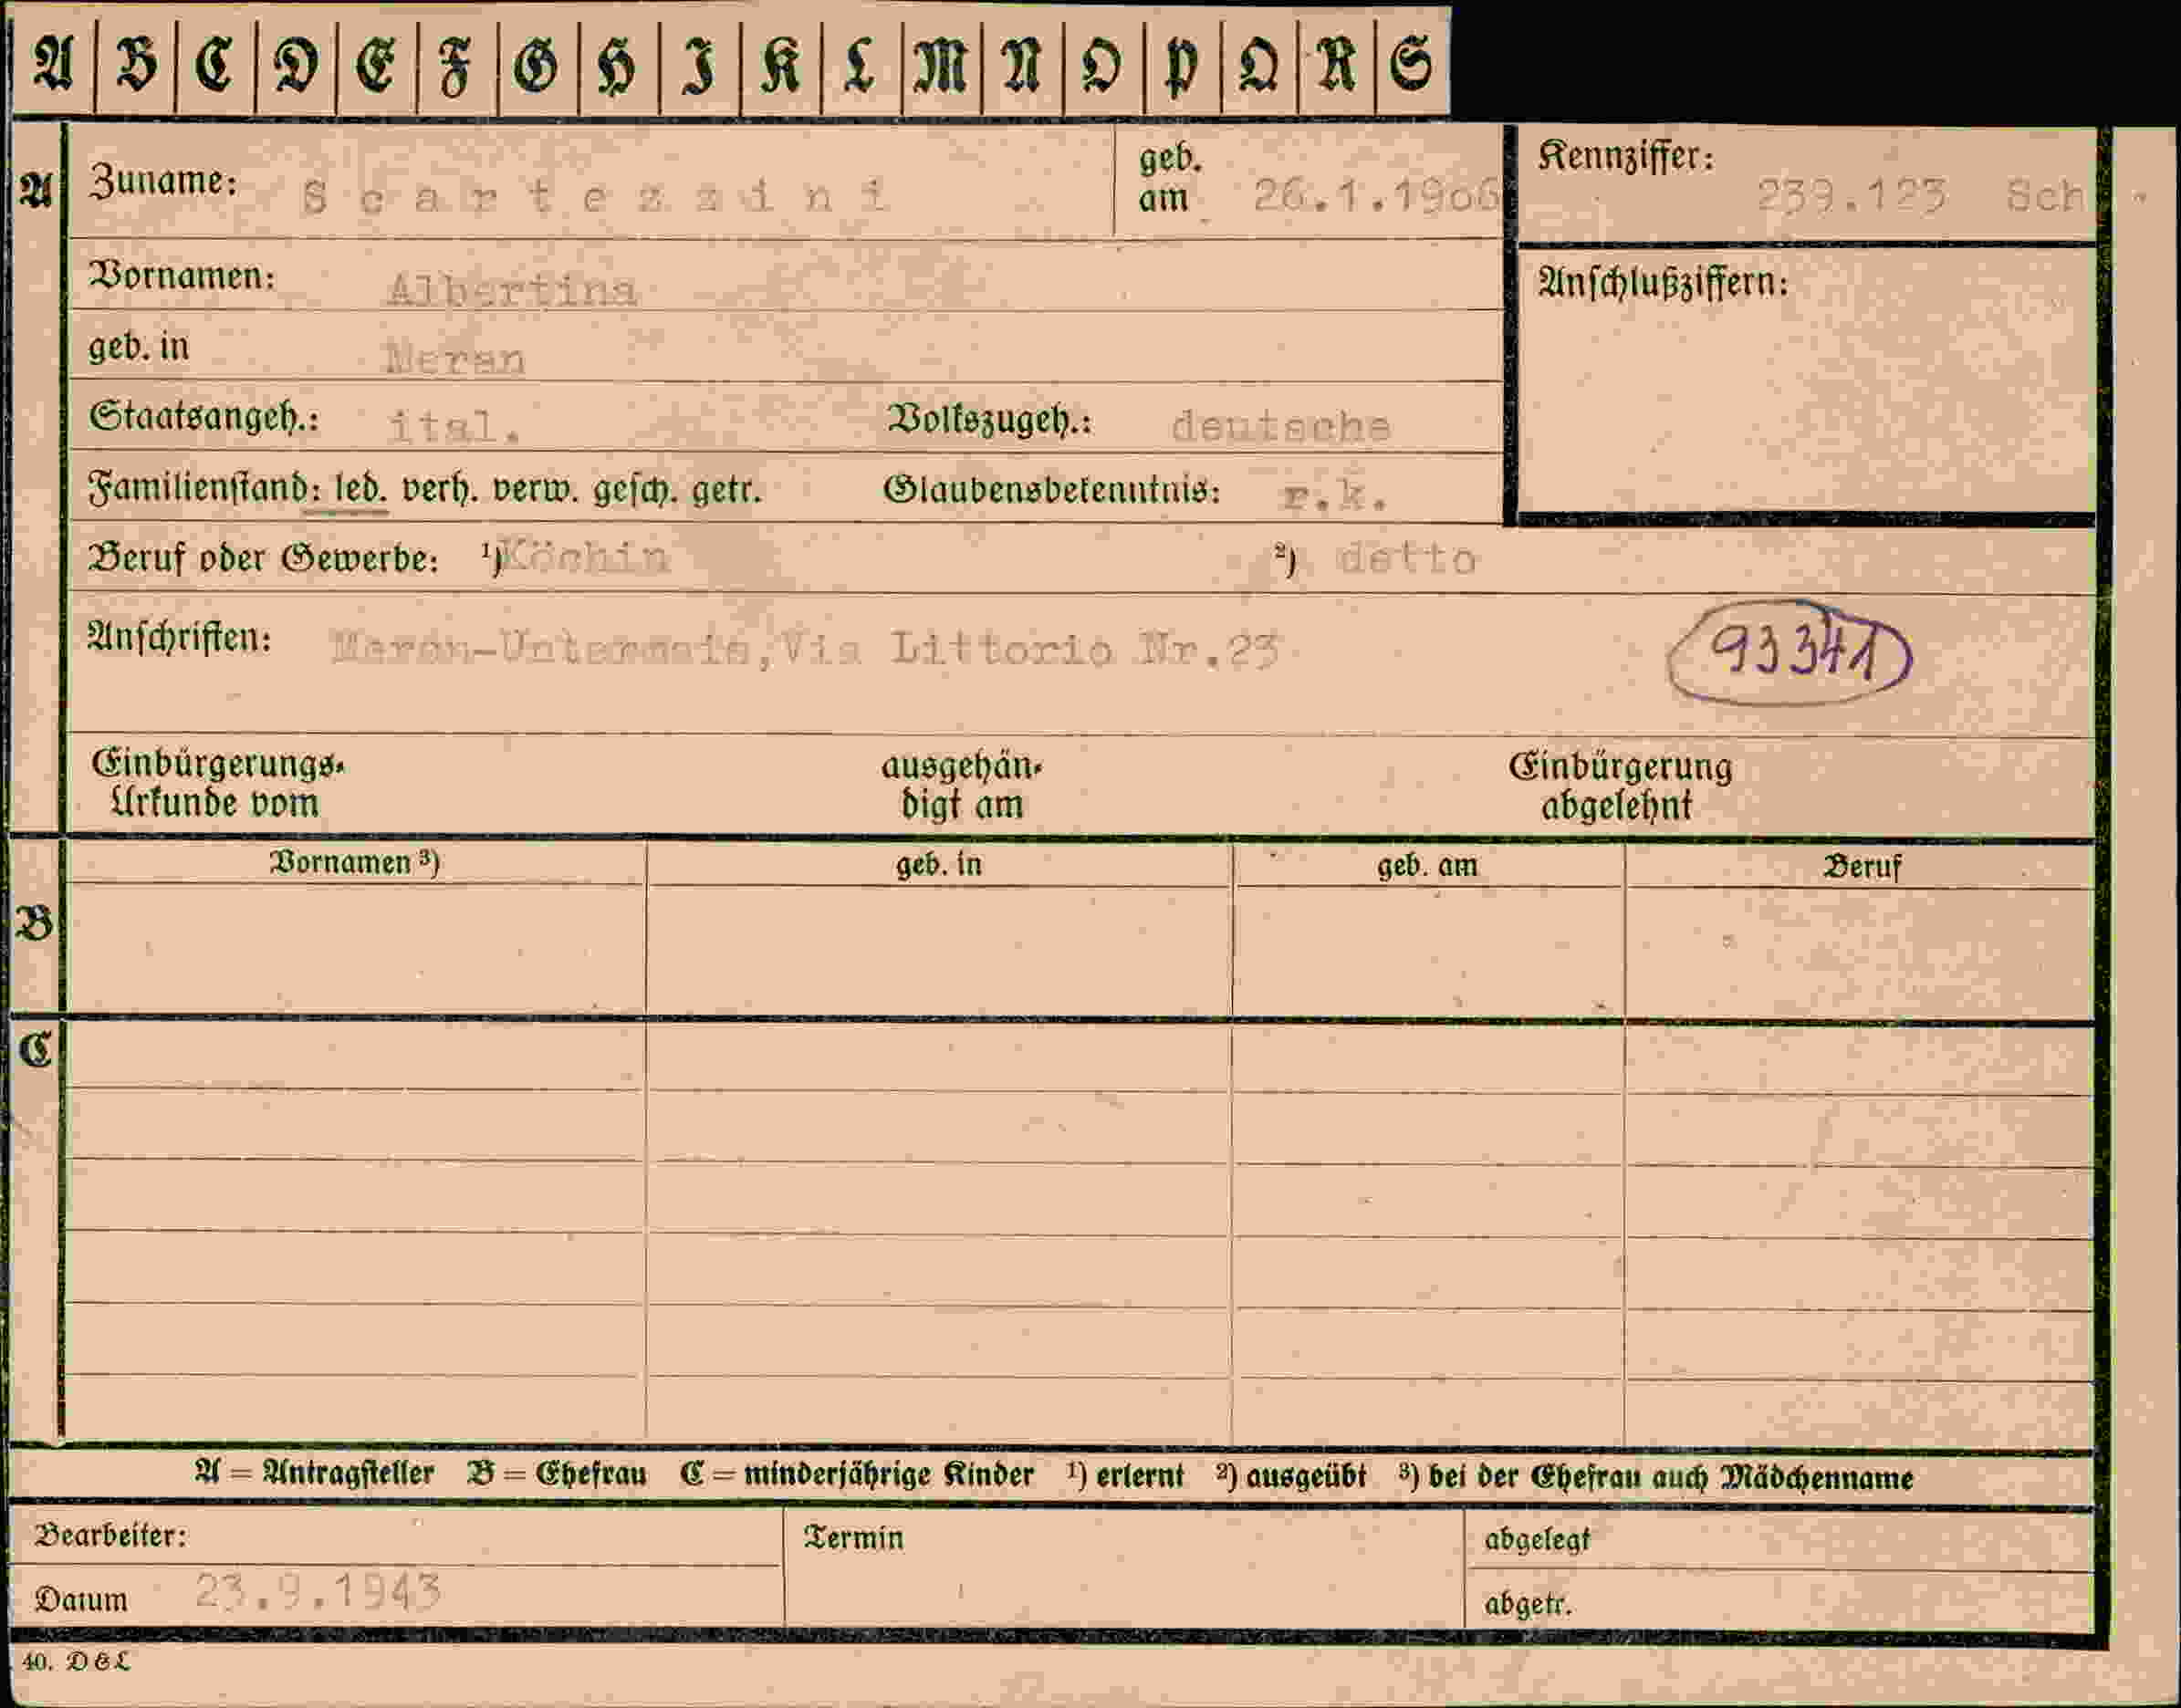 A B C D E F G H I K L M N O P Q R S
A
Zuname: Scartezzini
geb. am 26.1.1906
Kennziffer: 239.123 Sch
Vornamen: Albertina
Anschlußziffern:
geb. in Meran
Staatsangeh.: ital. Volkszugeh.: deutsche
Familienstand: led. verh. verw. gesch. getr. Glaubensbekenntnis: r.k.
Beruf oder Gewerbe: ¹) Köchin ²) detto
Anschriften: Meran-Untermais, Via Littorio Nr.23
93341
Einbürgerungs-
Urkunde vom
ausgehän-
digt am
Einbürgerung
abgelehnt
B
Vornamen ³) geb. in geb. am Beruf
C
A = Antragsteller B = Ehefrau C = minderjährige Kinder ¹) erlernt ²) ausgeübt ³) bei der Ehefrau auch Mädchenname
Bearbeiter: Termin abgelegt
Datum 23.9.1943 abgetr.
40. D&L